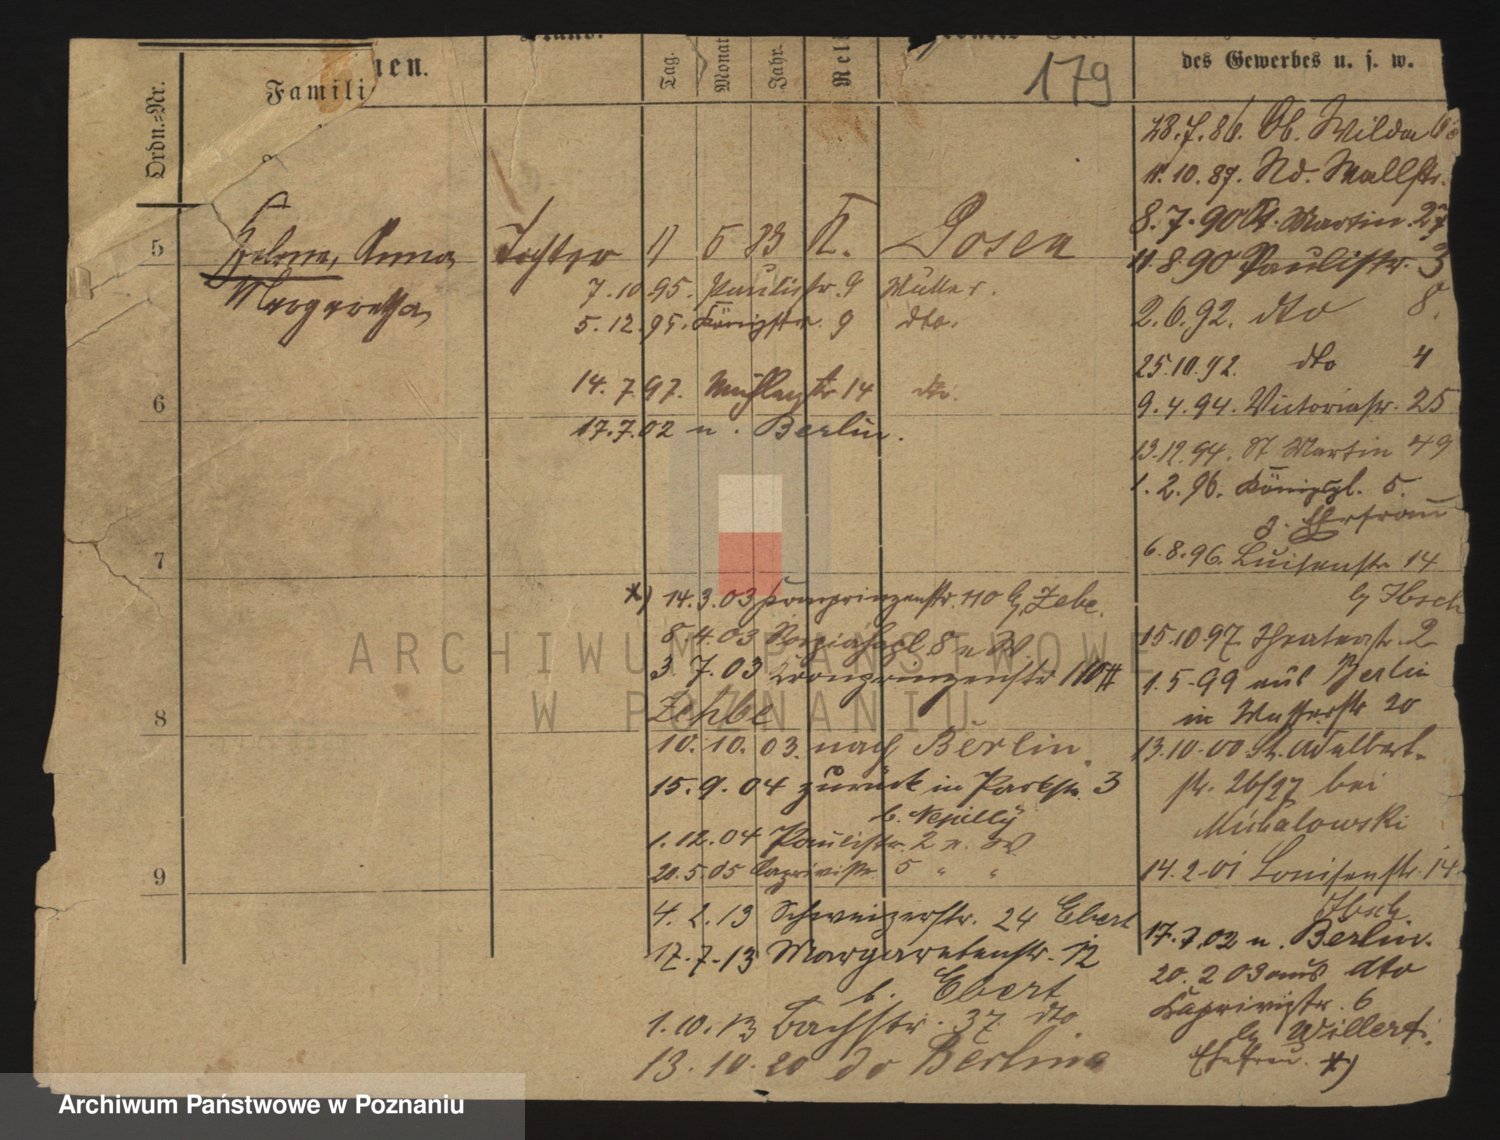 nen.
Famili
Ordn.=Nr.
Stand.
Tag.
Monat
Jahr.
Reli
179
des Gewerbes u. s. w.
28.7.86. Ob. Wilda
11.10.87. Nd. Wallstr.
8.7.90 St. Martin 27
11.8.90 Paulistr. 3
2.6.92. dto 8.
25.10.92. dto 4
9.4.94. Victoriastr. 25
13.12.94. St Martin 49
1.2.96. Königspl. 5.
z. Ehefrau
6.8.96. Luisenstr 14
b/ Ibsch
15.10.97. Theaterstr. 2
1.5.99 aus Berlin
in Wasserstr 20
13.10.00 St. Adalbert-
str. 26/27 bei
Michalowski
14.2.01 Louisenstr. 14
Ibsch.
17.7.02 n. Berlin.
20.2.03 aus dto
Kaprivistr. 6
b/ Willert.
Ehefrau. *)
5 Anna Tochter 11 5 83 K. Posen
Margaretha
7.10.95. Paulistr. 9 Mutter.
5.12.95. Königstr. 9 dto.
14.7.97. Mühlenstr 14 dto.
6
17.7.02 n. Berlin.
7
*) 14.3.03 Kronprinzenstr. 110 b/ Zebe.
8.4.03 8 n W.
3.7.03 Kronprinzenstr 110 II
Zehbe
8
10.10.03. nach Berlin.
15.9.04 zurück in Parkstr. 3
b. Nepilly
1.12.04 Paulistr. 2 n. W
20.5.05 Kaprivistr. 5 " "
9
4.2.13 Schweizerstr. 24 Ebert
17.7.13 Margaretenstr. 12
b. Ebert
1.10.13 Bachstr. 37 dto
13.10.20 do Berlina
ARCHIWUM PAŃSTWOWE
W POZNANIU
Archiwum Państwowe w Poznaniu